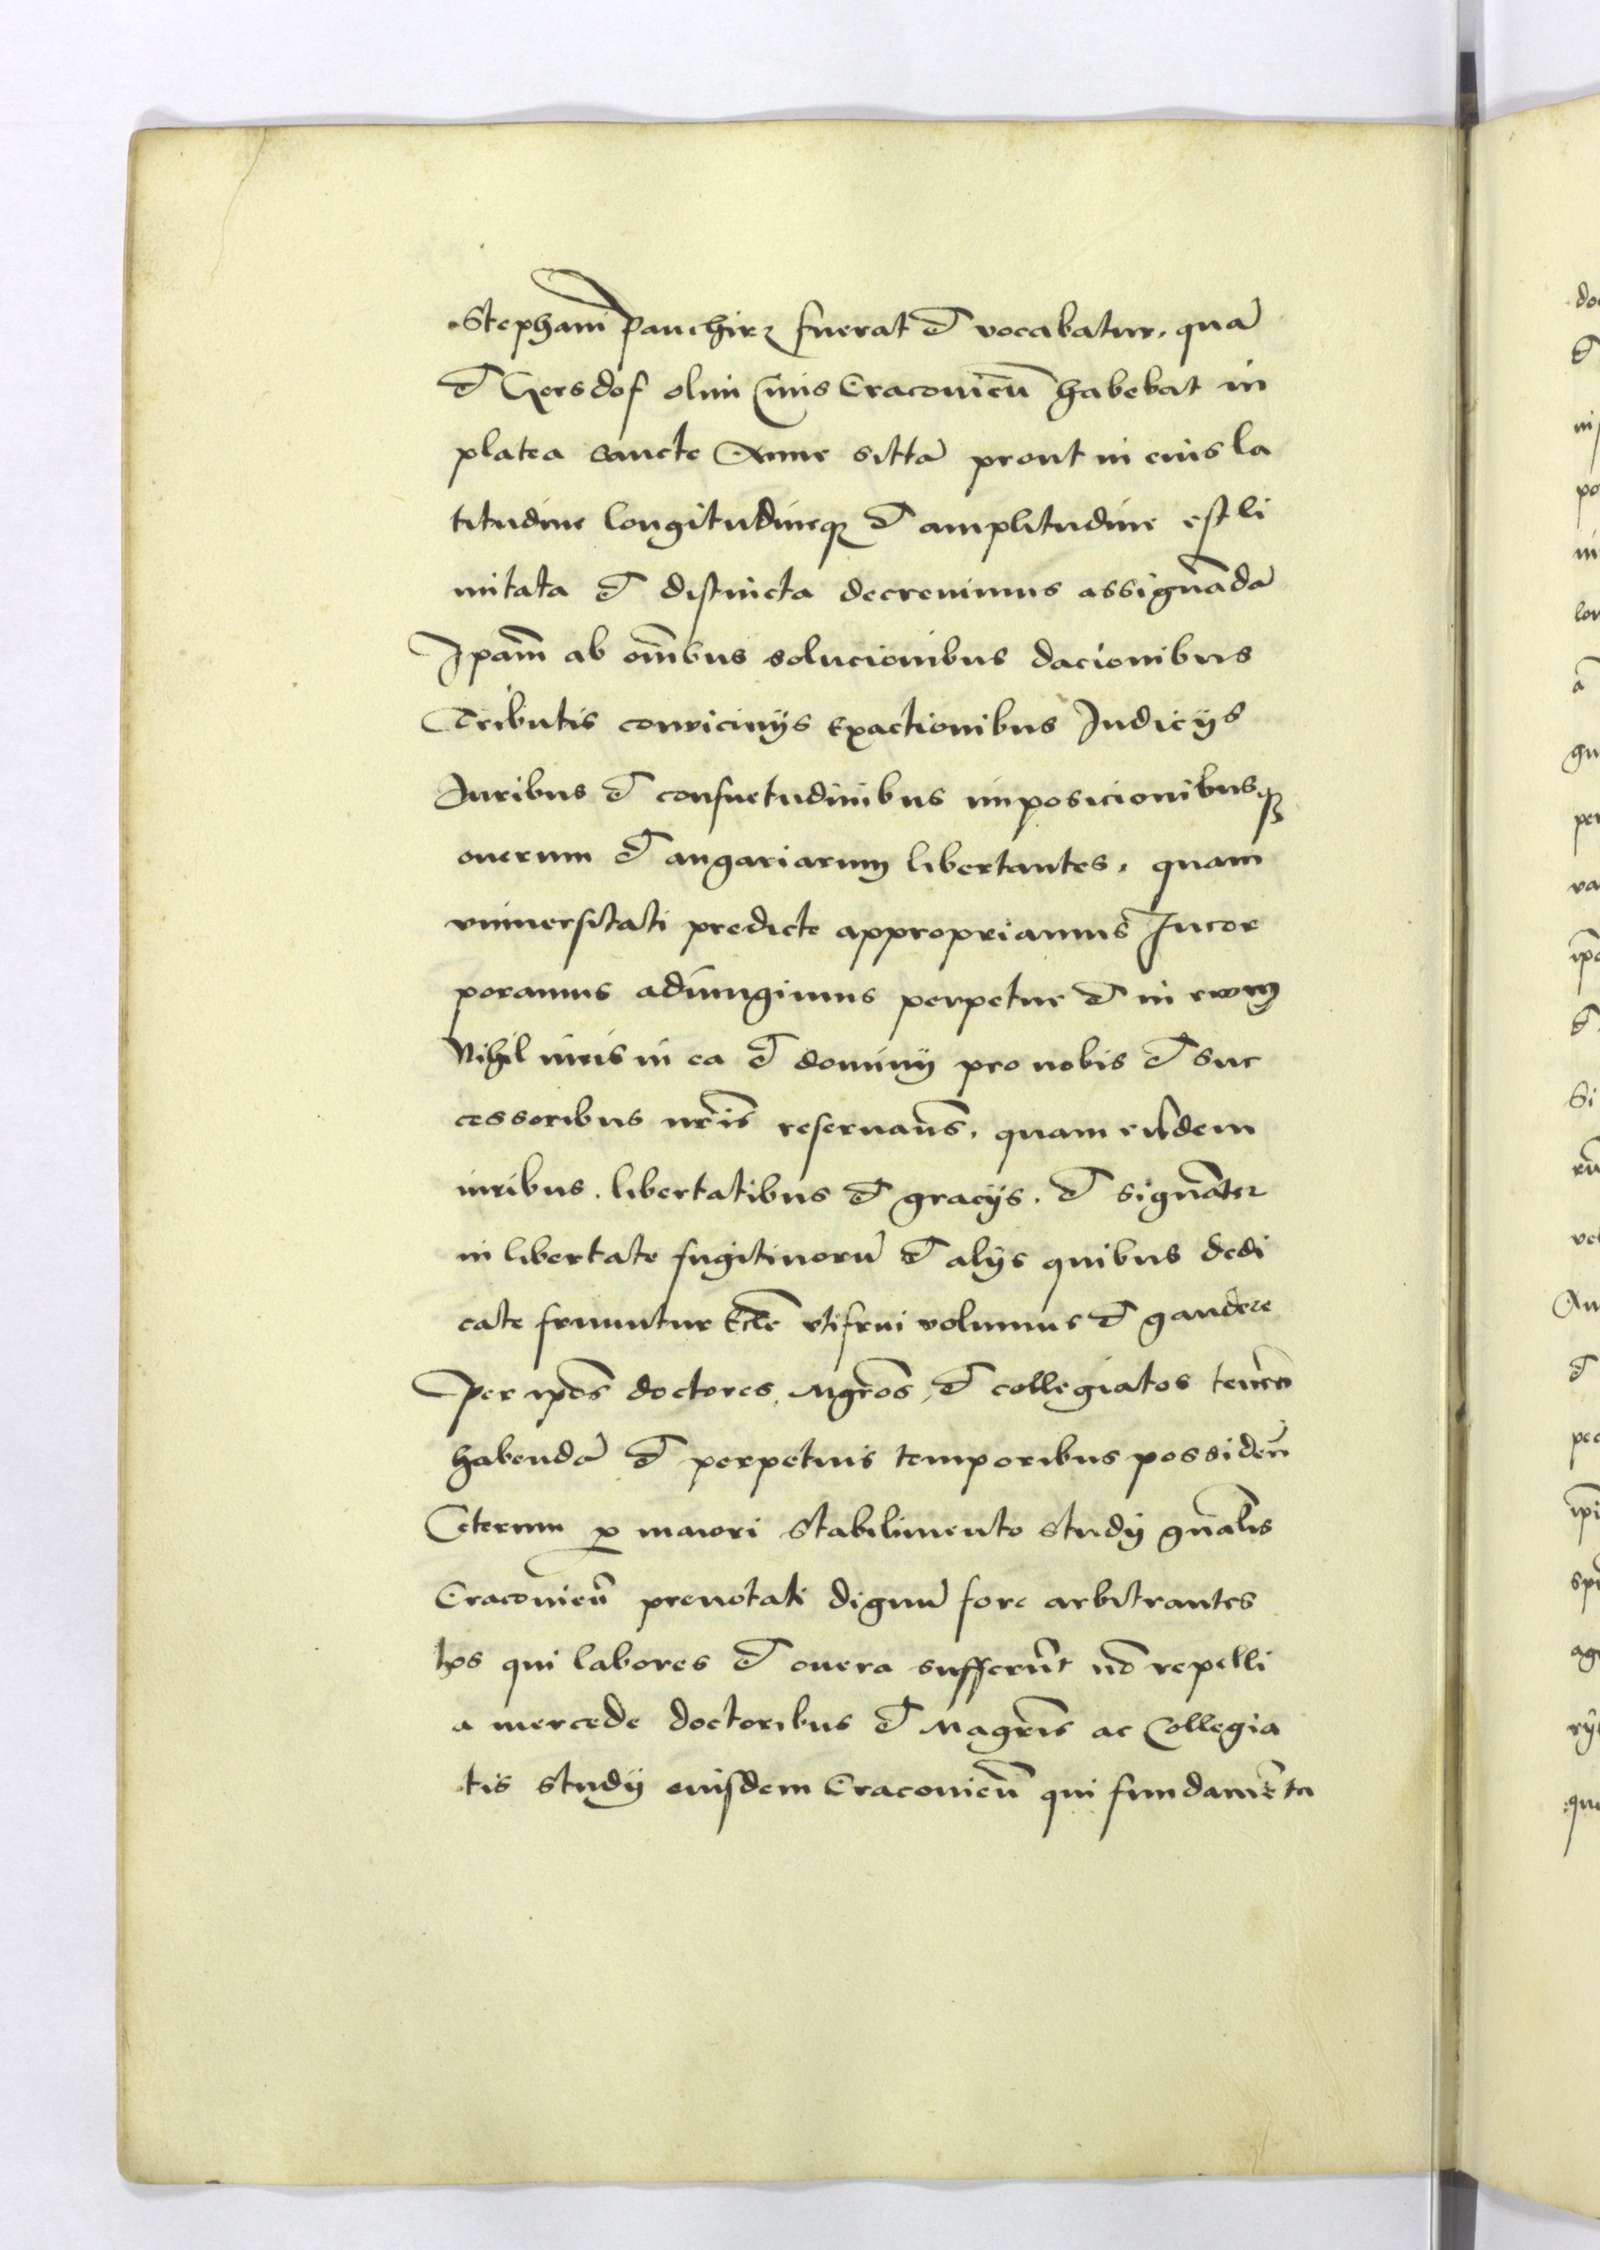 Stephani Pauchirz fuerat et vocabatur, quā
et Gersdof olim Ciuis Cracouieñ habebat in
platea sancte Anne sittā prout in eius la
titudine longitudineqз et amplitudine est li
mitata et distincta decreuimus assignādā
Ipam̄ ab om̄ibus solucionibus dacionibus
Tributis conuicinijs Exactionibus Iudicijs
Iuribus et consuetudinibus imposicionibusqз
onerum et angariarum libertantes, quam
vniuersitati predicte appropriamus Incor
poramus adiungimus perpetue et in ewm
Nihil iuris in ea et dominij pro nobis et suc
cessoribus nr̄is reseruañs, quam eisdem
iuribus, libertatibus et gracijs, et signāter
in libertate fugitiuorū et alijs quibus dedi
cate fruuntur Eccl̄e vtifrui volumus et gaudere
Per ip̄os doctores, Mgr̄os, et collegiatos teneñ
habendā et perpetuis temporibus possideñ
Ceterum p maiori Stabilimento studij gn̄alis
Cracouieñ prenotati dignū fore arbitrantes
hos qui labores et onera sufferūt nō repelli
a mercede doctoribus et Magr̄is ac Collegia
tis studij eiusdem Cracouieñ qui fundamēta